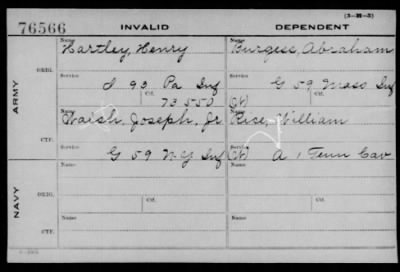 (3-111-3)
76566 INVALID DEPENDENT
Name Hartley, Henry Name Burgess, Abraham
ARMY ORIG. Service I 93 Pa Inf Service G 59 Mass Inf
Ctf. 73550 Ctf. (W)
Name Walsh, Joseph, Jr Name Rice, William
CTF. Service G 59 N.Y. Inf Service (W) A 1 Tenn Cav
NAVY Name Name
ORIG. Service Ctf. Service Ctf.
Name Name
CTF. Service Service